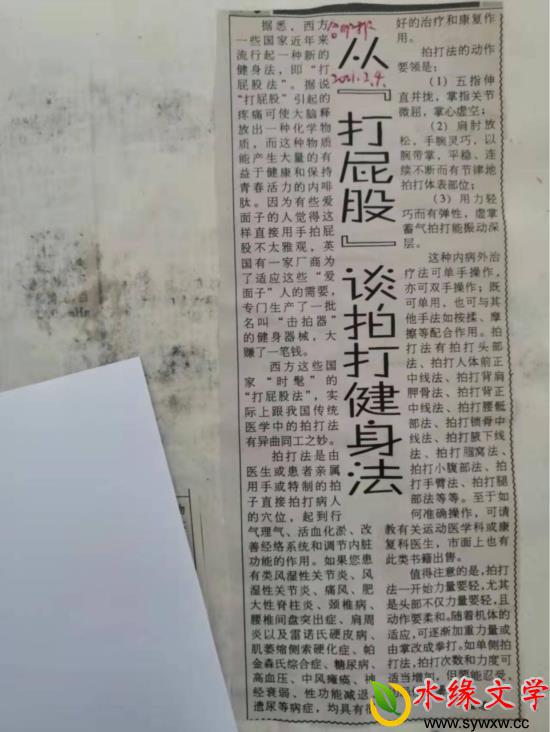 从『打屁股』谈拍打健身法
2021.2.4.
据悉，西方
一些国家近年来
流行起一种新的
健身法，即“打
屁股法”。据说
“打屁股”引起的
疼痛可使大脑释
放出一种化学物
质，而这种物质
能产生大量的有
益于健康和保持
青春活力的内啡
肽。因为有些爱
面子的人觉得这
样直接用手拍屁
股不太雅观，英
国有一家厂商为
了适应这些“爱
面子”人的需要，
专门生产了一批
名叫“击拍器”
的健身器械，大
赚了一笔钱。
西方这些国
家“时髦”的
“打屁股法”，实
际上跟我国传统
医学中的拍打法
有异曲同工之妙。
拍打法是由
医生或患者亲属
用手或特制的拍
子直接拍打病人
的穴位，起到行
气理气、活血化淤、改
善经络系统和调节内脏
功能的作用。如果您患
有类风湿性关节炎、风
湿性关节炎、痛风、肥
大性脊柱炎、颈椎病、
腰椎间盘突出症、肩周
炎以及雷诺氏硬皮病、
肌萎缩侧索硬化症、帕
金森氏综合症、糖尿病、
高血压、中风瘫痪、神
经衰弱、性功能减退、
遗尿等病症，均具有很
好的治疗和康复作
用。
拍打法的动作
要领是：
（1）五指伸
直并拢，掌指关节
微屈，掌心虚空；
（2）肩肘放
松，手腕灵巧，以
腕带掌，平稳、连
续不断而有节律地
拍打体表部位；
（3）用力轻
巧而有弹性，虚掌
蓄气拍打能振动深
层。
这种内病外治
疗法可单手操作，
亦可双手操作；既
可单用，也可与其
他手法如按揉、摩
擦等配合作用。拍
打法有拍打头部
法、拍打人体前正
中线法、拍打背肩
胛骨法、拍打背正
中线法、拍打腰骶
部法、拍打锁骨中
线法、拍打腋下线
法、拍打腘窝法、
拍打小腹部法、拍
打手臂法、拍打腿
部法等等。至于如
何准确操作，可请
教有关运动医学科或康
复科医生，市面上也有
此类书籍出售。
值得注意的是，拍打
法一开始力量要轻，尤其
是头部不仅力量要轻，且
动作要柔和。随着机体的
适应，可逐渐加重力量或
由掌改成拳打。如单侧拍
打法，拍打次数和力度可
适当增加，但要能忍受，
水缘文学
www.sywxw.com